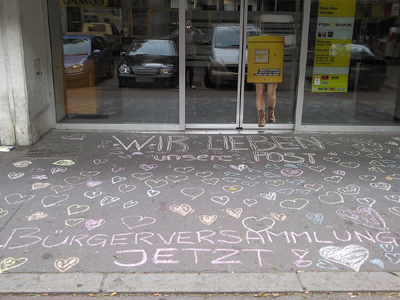 WIR LIEBEN
unsere POST
BÜRGERVERSAMMLUNG
JETZT!